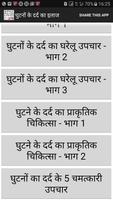 16:25
घुटनों के दर्द का इलाज
SHARE THIS APP
घुटनों के दर्द का घरेलू उपचार -
भाग 2
घुटनों के दर्द का घरेलू उपचार -
भाग 3
घुटने के दर्द का प्राकृतिक
चिकित्सा - भाग 1
घुटने के दर्द का प्राकृतिक
चिकित्सा - भाग 2
घुटनों का दर्द के 5 चमत्कारी
उपचार